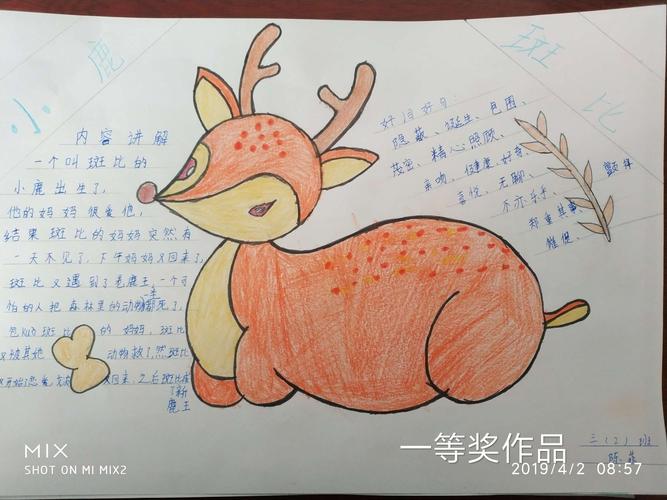 小鹿
斑比
内容讲解
一个叫斑比的
小鹿出生了,
他的妈妈很爱他,
结果斑比的妈妈突然有
一天不见了,下午妈妈又回来了,
斑比又遇到了老鹿王,一个可
怕的人把森林里的动物都死了,
包括斑比的妈妈,斑比
又被其他动物救了然斑比
又回来,之后斑比成
了新
鹿王
好词好句:
隐蔽、诞生、包围、
茂密、精心照顾、
亲吻、健康、好奇、
喜悦、无聊、
不亦乐乎、
郑重其事、
催促、
颤抖
三(2)班
陈
一等奖作品
MIX
SHOT ON MI MIX2
2019/4/2 08:57